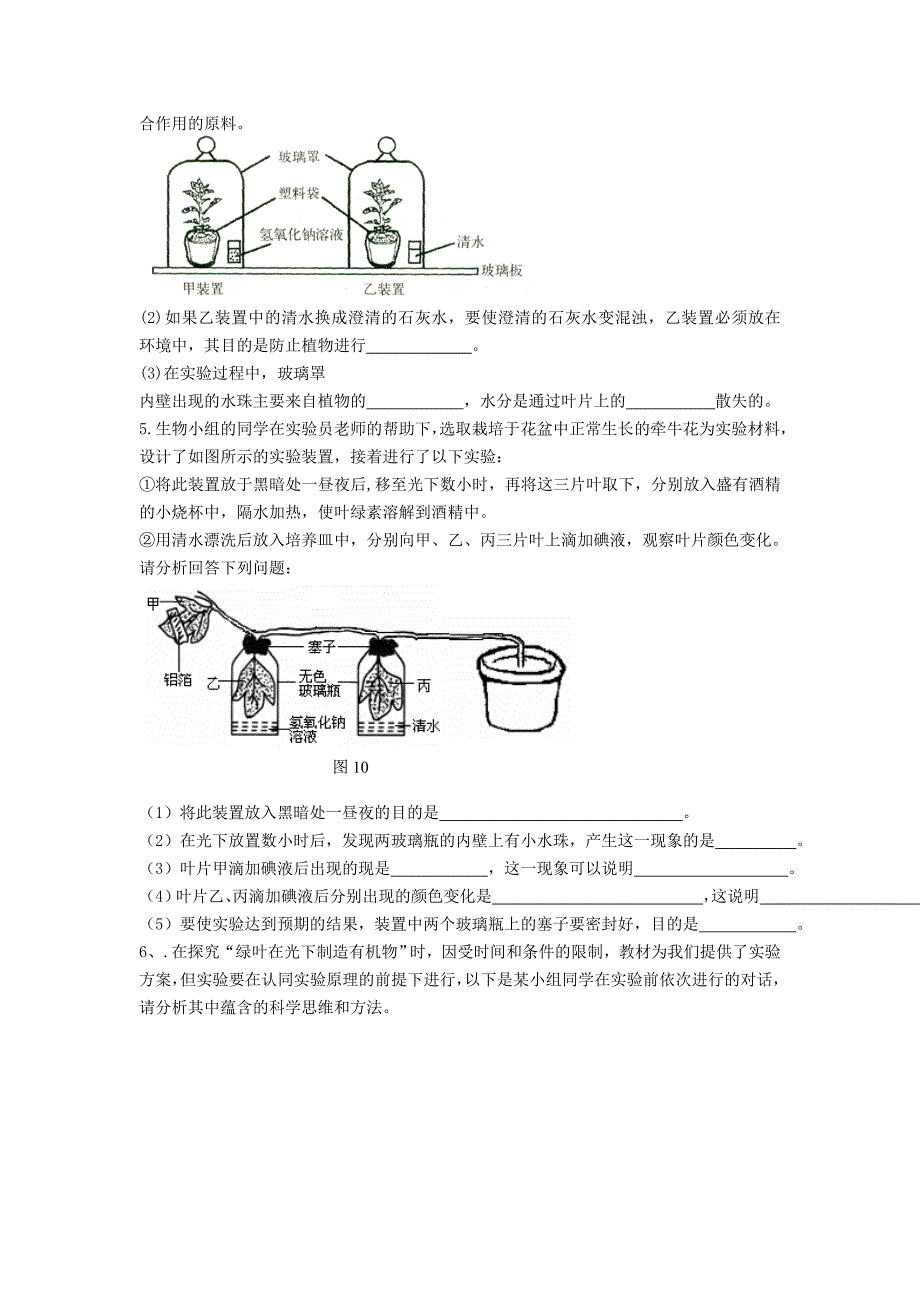 合作用的原料。
玻璃罩
塑料袋
氢氧化钠溶液
清水
玻璃板
甲装置
乙装置
(2)如果乙装置中的清水换成澄清的石灰水，要使澄清的石灰水变混浊，乙装置必须放在
环境中，其目的是防止植物进行____________。
(3)在实验过程中，玻璃罩
内壁出现的水珠主要来自植物的___________，水分是通过叶片上的__________散失的。
5.生物小组的同学在实验员老师的帮助下,选取栽培于花盆中正常生长的牵牛花为实验材料，
设计了如图所示的实验装置，接着进行了以下实验：
①将此装置放于黑暗处一昼夜后,移至光下数小时，再将这三片叶取下，分别放入盛有酒精
的小烧杯中，隔水加热，使叶绿素溶解到酒精中。
②用清水漂洗后放入培养皿中，分别向甲、乙、丙三片叶上滴加碘液，观察叶片颜色变化。
请分析回答下列问题：
甲
铝箔
乙
塞子
无色
玻璃瓶
氢氧化钠
溶液
丙
清水
图10
（1）将此装置放入黑暗处一昼夜的目的是____________________________。
（2）在光下放置数小时后，发现两玻璃瓶的内壁上有小水珠，产生这一现象的是_________。
（3）叶片甲滴加碘液后出现的现是___________，这一现象可以说明_________________。
（4）叶片乙、丙滴加碘液后分别出现的颜色变化是________________________,这说明__________________
（5）要使实验达到预期的结果，装置中两个玻璃瓶上的塞子要密封好，目的是___________。
6、.在探究“绿叶在光下制造有机物”时，因受时间和条件的限制，教材为我们提供了实验
方案,但实验要在认同实验原理的前提下进行,以下是某小组同学在实验前依次进行的对话，
请分析其中蕴含的科学思维和方法。